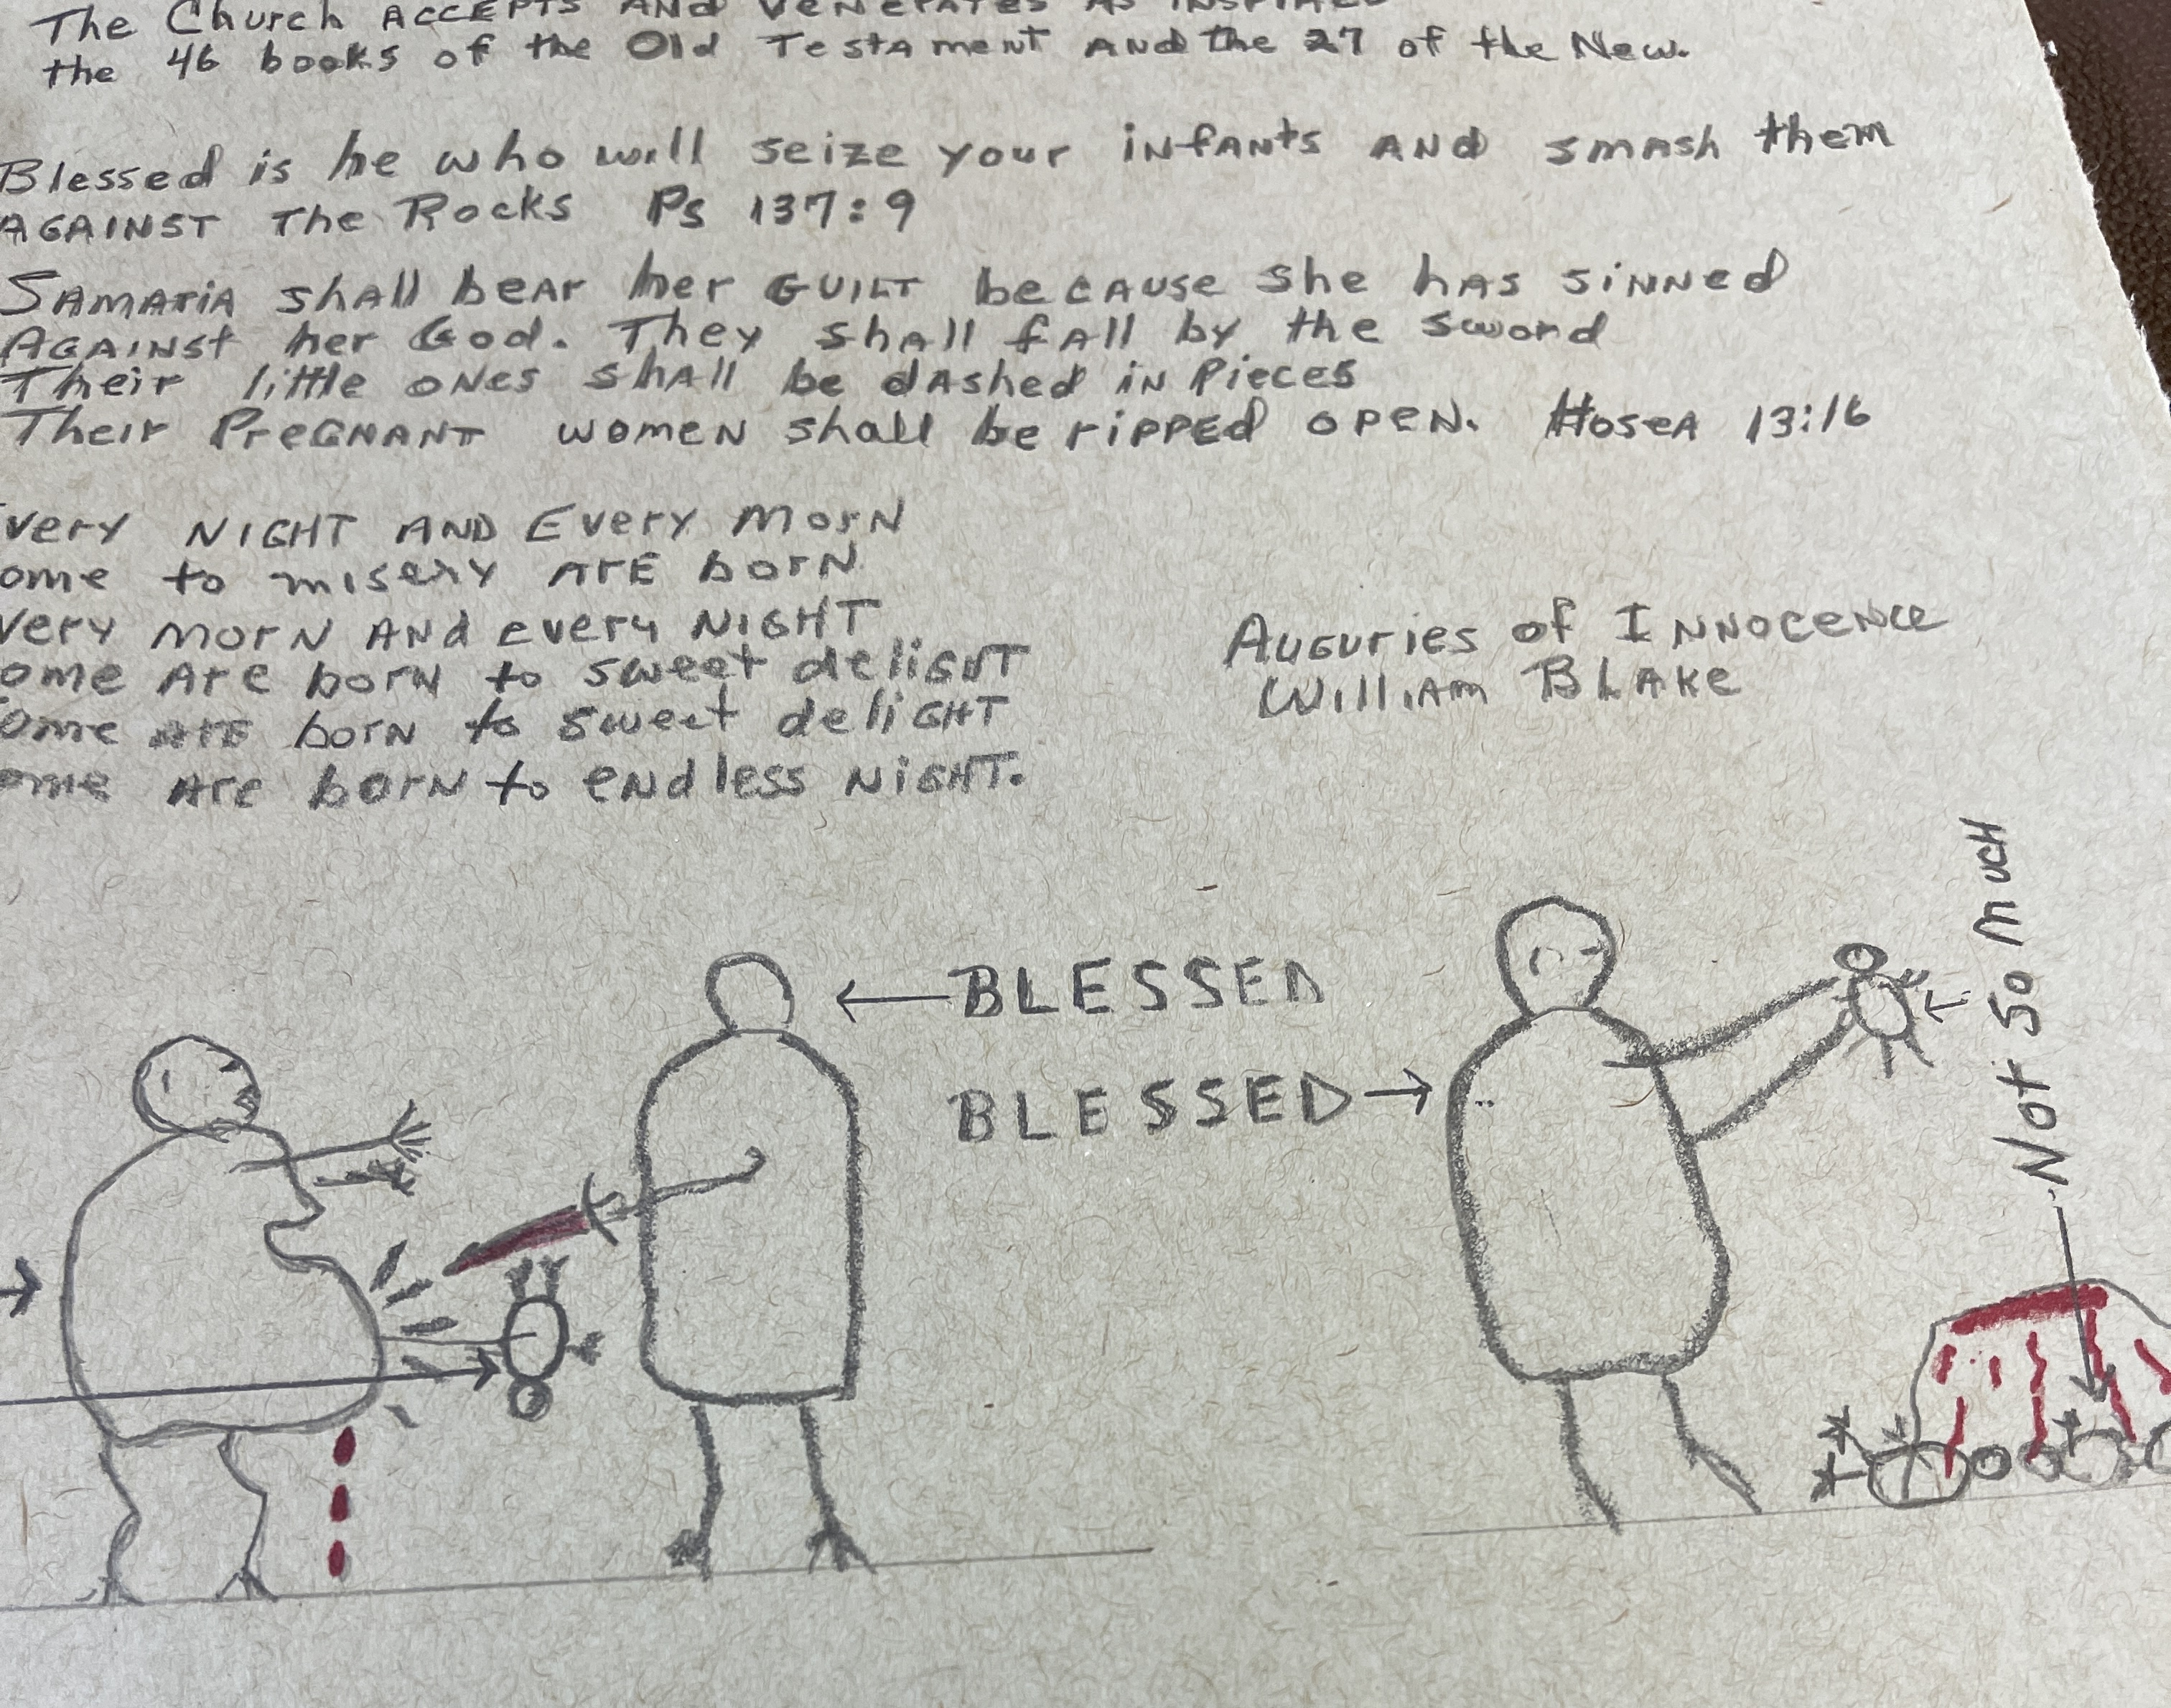 The Church ACCEPTS AND VENERATES AS INSPIRED
the 46 books of the Old Testament AND the 27 of the New.
Blessed is he who will seize your infants AND smash them
AGAINST The Rocks Ps 137:9
SAMARIA shall bear her GUILT because she has sinned
AGAINST her God. They shall fall by the sword
Their little ones shall be dashed in Pieces
Their PREGNANT women shall be ripped open. Hosea 13:16
very NIGHT AND Every Morn
ome to misery are born
very morn and every NIGHT
ome are born to sweet delight
ome are born to sweet delight
ome are born to endless night.
Auguries of Innocence
William Blake
BLESSED
BLESSED
Not So Much